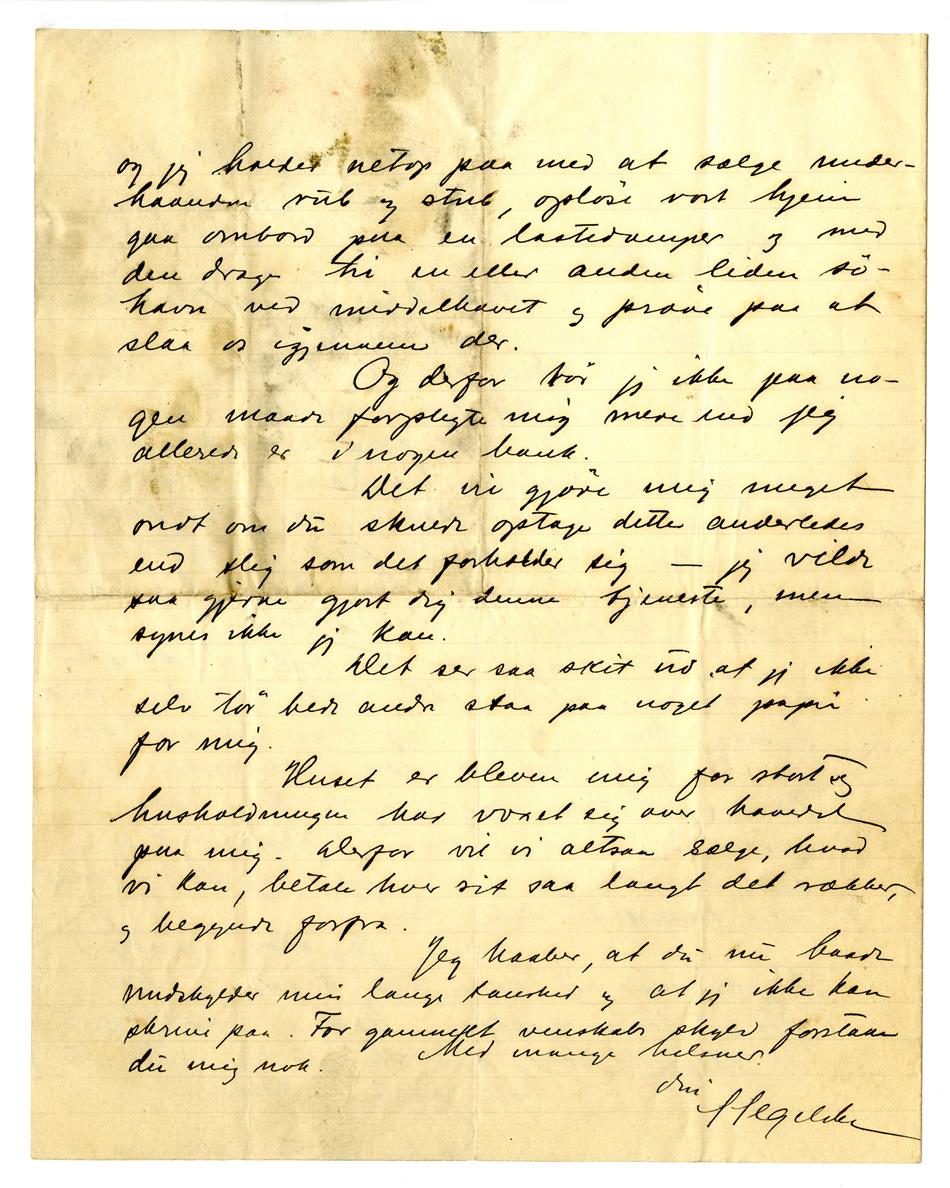 og jeg holder netop paa med at sælge under-
haanden rub og stub, opløse vort hjem
gaa ombord paa en lastedamper og med
den drage til en eller anden liden sö-
havn ved middelhavet og prøve paa at
slaa os igjennem der.
Og derfor tör jeg ikke paa no-
gen maade forpligte mig mere end jeg
allerede er i nogen bank.
Det vil gjøre mig meget
ondt om du skulde optage dette anderledes
end slig som det forholder sig — jeg vilde
saa gjerne gjort dig denne tjeneste, men
synes ikke jeg kan.
Det ser saa skit ud at jeg ikke
selv tör bede andre staa paa noget papir
for mig.
Huset er bleven mig for stort og
husholdningen har voxet sig over hovedet
paa mig. Derfor vil vi altsaa sælge, hvad
vi kan, betale hver sit saa langt det rækker,
og begynde forfra.
Jeg haaber, at du nu baade
undskylder min lange taushed og at jeg ikke kan
skrive paa. For gammelt venskabs skyld forstaar
du mig nok. Med mange hilsner
din